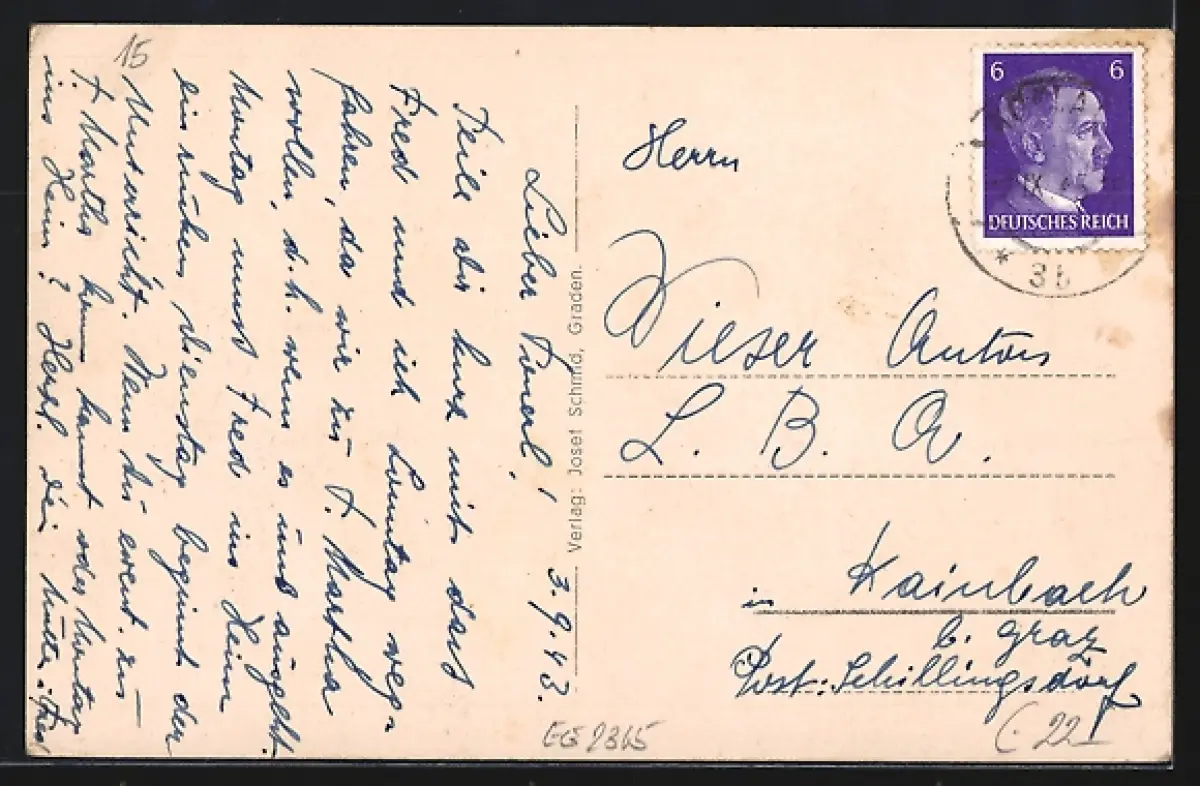 15
Lieber Tonerl!
3.9.43.
Teile dir kurz mit, dass
Fred und ich Sonntag weg-
fahren, da wir zu T. Martha
wollen, d.h. wenn es uns ausgeht.
Montag muss Fred ins Heim
einrücken, Dienstag beginnt der
Unterricht. Wenn du event. zu
T. Martha komm kannst oder Montag
ins Heim? Herzl. dei Mutti
Verlag: Josef Schmid, Graden.
6 6
DEUTSCHES REICH
3b
Herrn
Wieser Anton
L. B. A.
in Kainbach
b. Graz
Post: Schillingsdorf
EG 2365
22